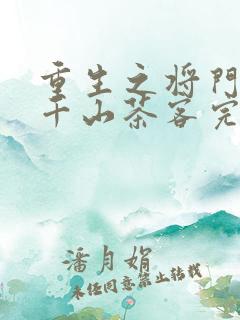 重生之将門
千山茶客完
潘月娟
未经同意禁止转载